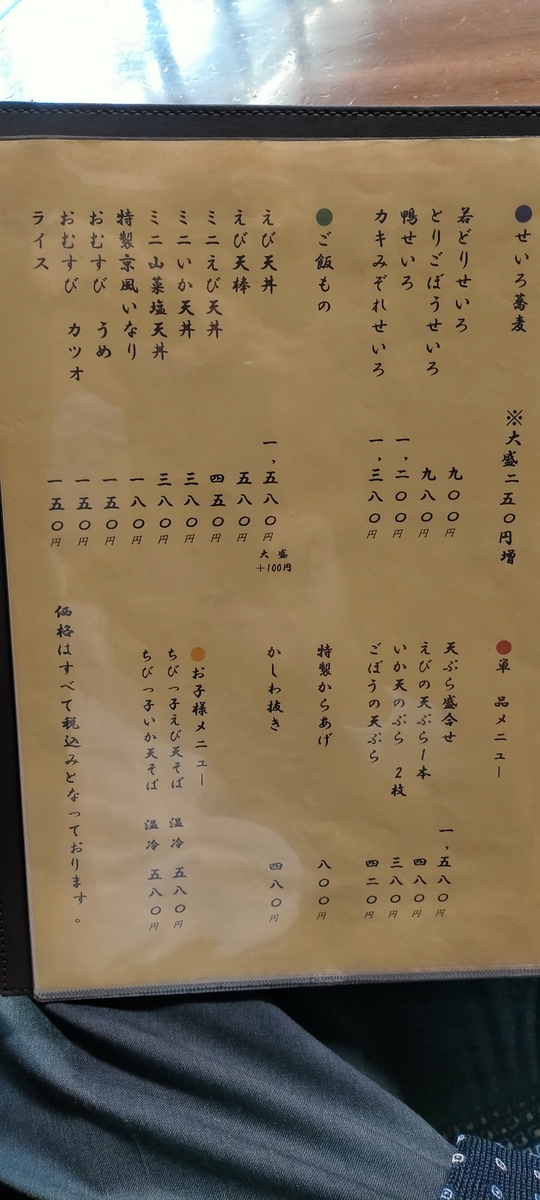 ●せいろ蕎麦 ※大盛二五〇円増
若どりせいろ 九〇〇円
とりごぼうせいろ 九八〇円
鴨せいろ 一,二〇〇円
カキみぞれせいろ 一,三八〇円
●ご飯もの
えび天丼 一,五八〇円 大盛+100円
えび天棒 五八〇円
ミニえび天丼 四五〇円
ミニいか天丼 三八〇円
ミニ山菜塩天丼 三八〇円
特製京風いなり 一八〇円
おむすび うめ 一五〇円
おむすび カツオ 一五〇円
ライス 一五〇円
●単 品メニュー
天ぷら盛合せ 一,五八〇円
えびの天ぷら1本 四八〇円
いか天のぷら 2枚 三八〇円
ごぼうの天ぷら 四二〇円
特製からあげ 八〇〇円
かしわ抜き 四八〇円
●お子様メニュー
ちびっ子えび天そば 温冷 五八〇円
ちびっ子いか天そば 温冷 五八〇円
価格はすべて税込みとなっております。